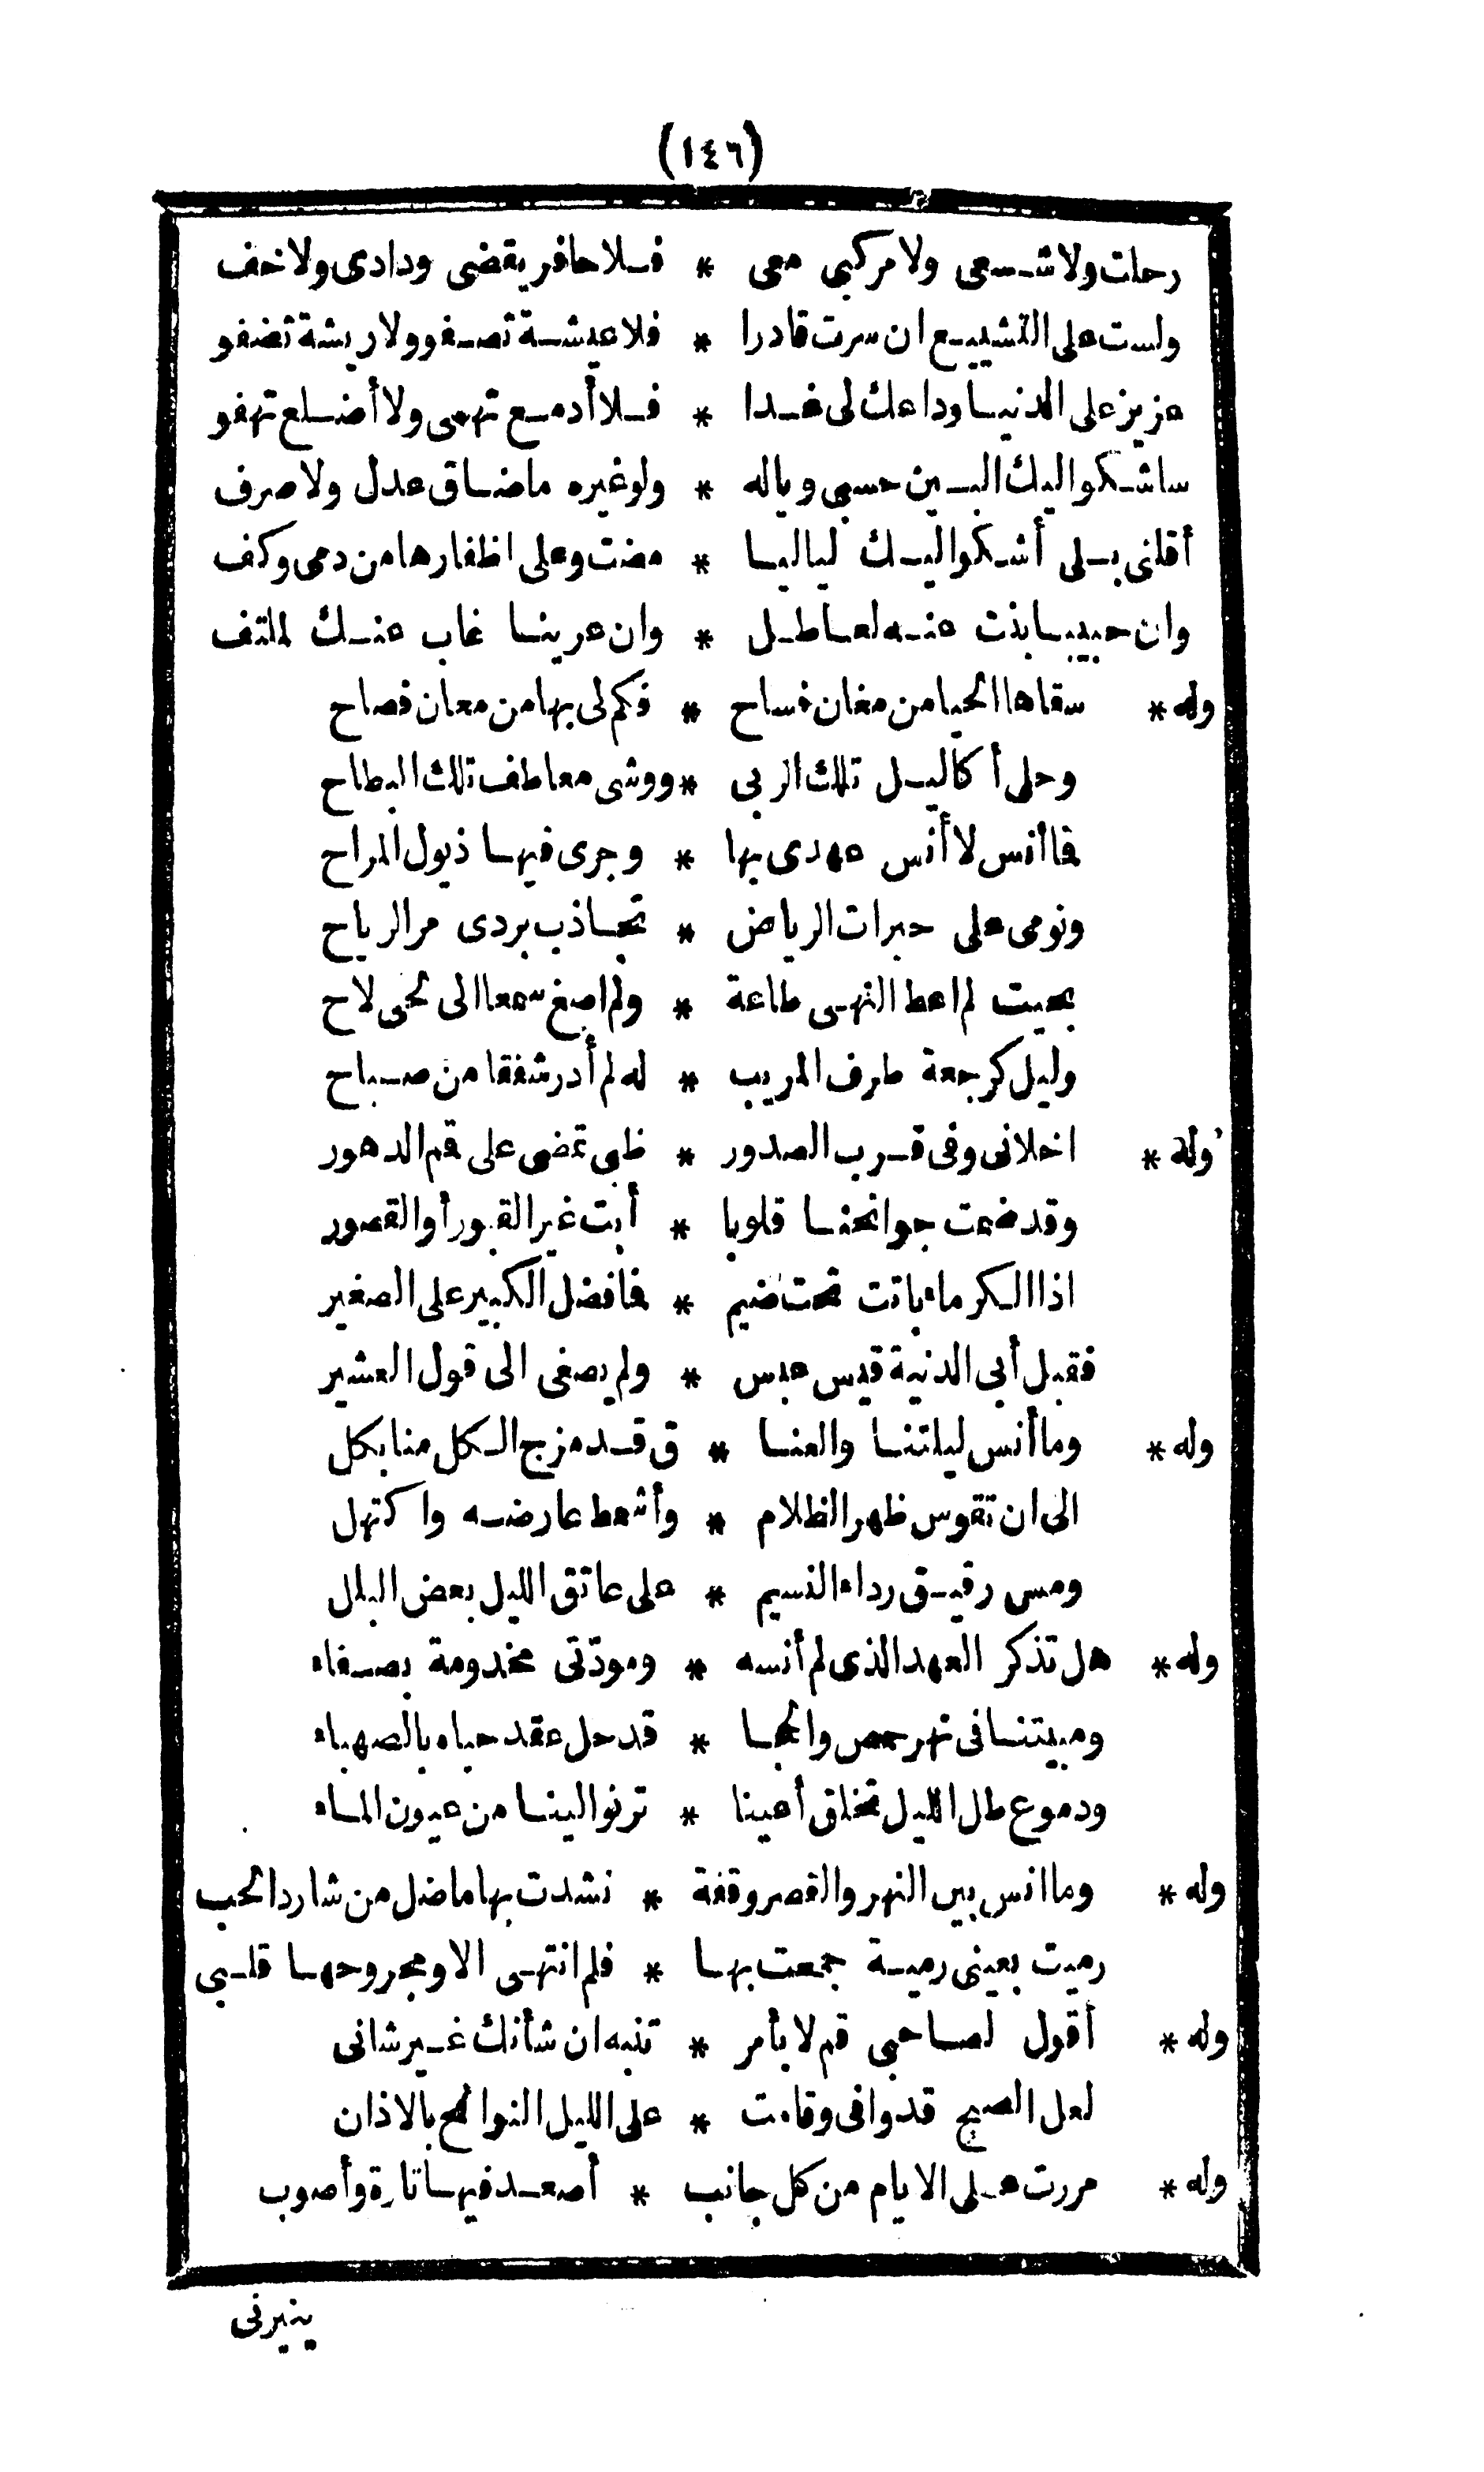 (١٤٦)
رحلت ولا شسعى ولا مركبى معى * فلا حافر يقضى ودادى ولا خف
ولست على التشييع ان سرت قادرا * فلا عيشة تصفو ولا ريشة تضفو
عزيز على الدنيا وداعك لى غدا * فلا أدمع تهمى ولا أضلع تهفو
ساشكو اليك البين حسبى وياله * ولو غيره ما ضاق عدل ولا صرف
أقلنى بلى أشكو اليك لياليا * مضت وعلى اظفارها من دمى وكف
وان حبيبا بنت عنه لعاطل * وان عرينا غاب عنك لملتف
وله * سقاها الحيا من مغان فساح * فكم لى بها من معان فصاح
وحلى أكاليل تلك الربى * ووشى معاطف تلك البطاح
فا أنس لا أنس عهدى بها * وجرى فيها ذيول المراح
ونومى على حبرات الرياض * تجاذب بردى مر الرياح
بحيث لم اعط النهى طاعة * ولم اصغ سمعا الى لحى لاح
وليل كرجعة طرف المريب * له لم أدر شفقا من صباح
وله * اخلانى وفى قرب الصدور * ظبى تمضى على قم الدهور
وقد ضمت جوانحنا قلوبا * أبت غير القبور أو القصور
اذا الكرماء باتت تحت ضيم * فا فضل الكبير على الصغير
فقبل أبى الدنية قيس عبس * ولم يصغى الى قول العشير
وله * وما أنس ليلتنا والعنا * ق قد مزج الكل منا بكل
الى ان تقوس ظهر الظلام * وأشمط عارضه واكتهل
ومس رقيق رداء النسيم * على عاتق الليل بعض البلل
وله * هل تذكر العهد الذى لم أنسه * ومودّتى مخدومة بصفاء
ومبيتنا فى نهر حمص والحجا * قد حل عقد حباه بالصهباء
ودموع طل الليل تخلق أعينا * ترنو الينا من عيون الماء
وله * وما انس بين النهر والقصر وقفة * نشدت بها ما ضل من شارد الحب
رميت بعينى رمية جمعت بها * فلم انتهى الا ومجروحها قلبى
وله * أقول لصاحبى قم لا بأمر * تنبه ان شأنك غير شانى
لعل الصبح قد وافى وقامت * على الليل النوائح بالاذان
وله * مررت على الايام من كل جانب * أصعد فيها تارة وأصوب
ينيرنى